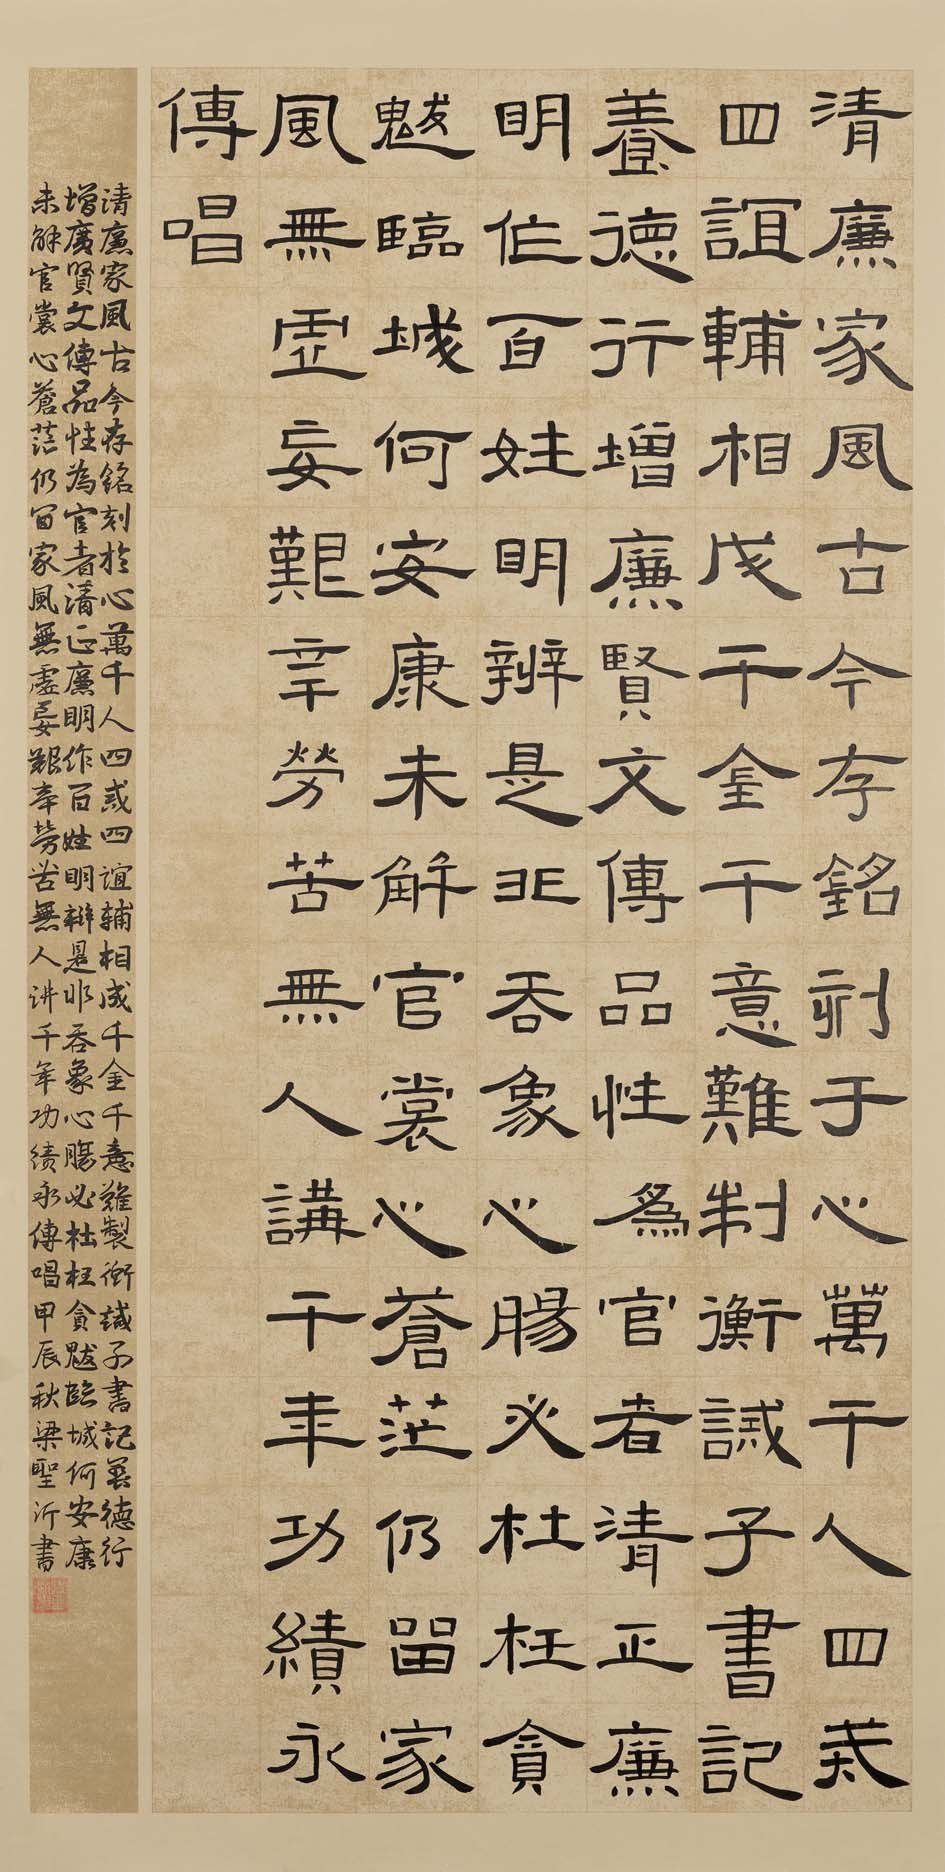 清廉家風古今存銘刻于心萬千人四戒
四誼輔相成千金千意難制衡誡子書記
養德行增廉賢文傳品性為官者清正廉
明作百姓明辨是非吞象心腸必杜枉貪
魃臨城何安康未解官裳心蒼茫仍留家
風無虛妄艱辛勞苦無人講千年功績永
傳唱
清廉家風古今存銘刻於心萬千人四戒四誼輔相成千金千意難製衡誡子書記養德行
增廣賢文傳品性為官者清正廉明作百姓明辨是非吞象心腸必杜枉貪魃臨城何安康
未解官裳心蒼茫仍留家風無虛妄艱辛勞苦無人讲千年功績永傳唱甲辰秋梁聖沂書